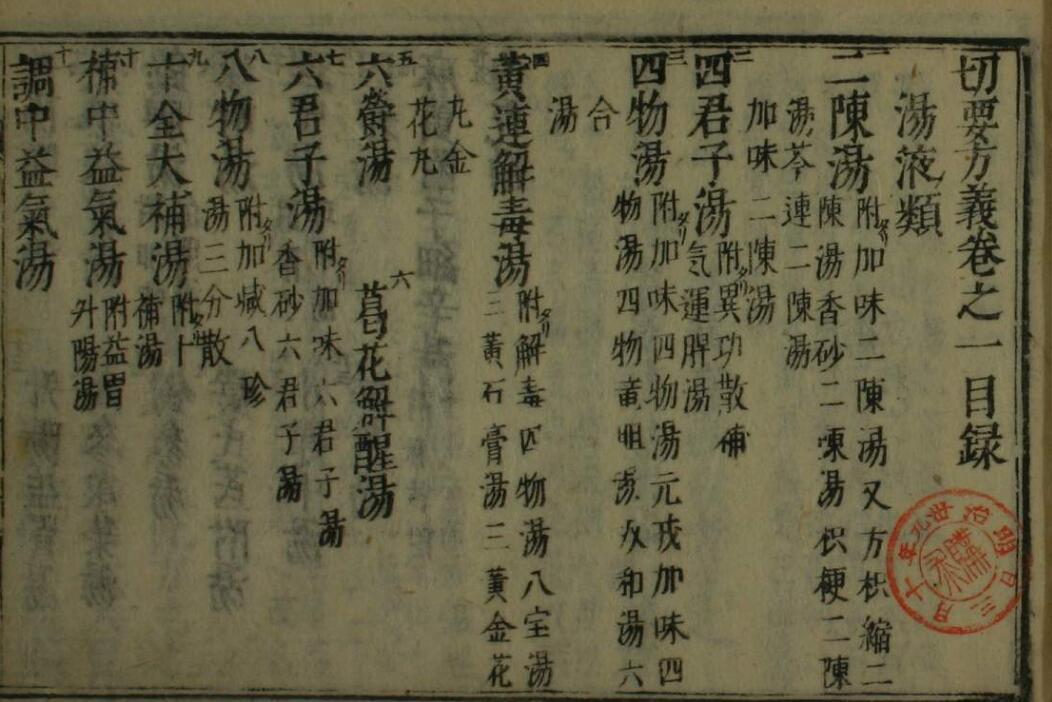 切要方義卷之一目録
湯液類
一
二陳湯 附タリ加味二陳湯又方枳縮二
陳湯香砂二陳湯枳梗二陳
湯芩連二陳湯
加味二陳湯
二
四君子湯 附タリ異功散補
気運脾湯
三
四物湯 附タリ加味四物湯元戎加味四
物湯四物 湯 和湯六
合
湯
四
黄連解毒湯 附タリ解毒四物湯八宝湯
三黄石膏湯三黄金花
丸金
花丸
五
六欝湯
六
葛花解醒湯
七
六君子湯 附タリ加味六君子湯
香砂六君子湯
八
八物湯 附タリ加減八珍
湯三分散
九
十全大補湯 附タリ十
補湯
十
補中益氣湯 附益胃
升陽湯
十
調中益氣湯
明治廿九年
十月三日